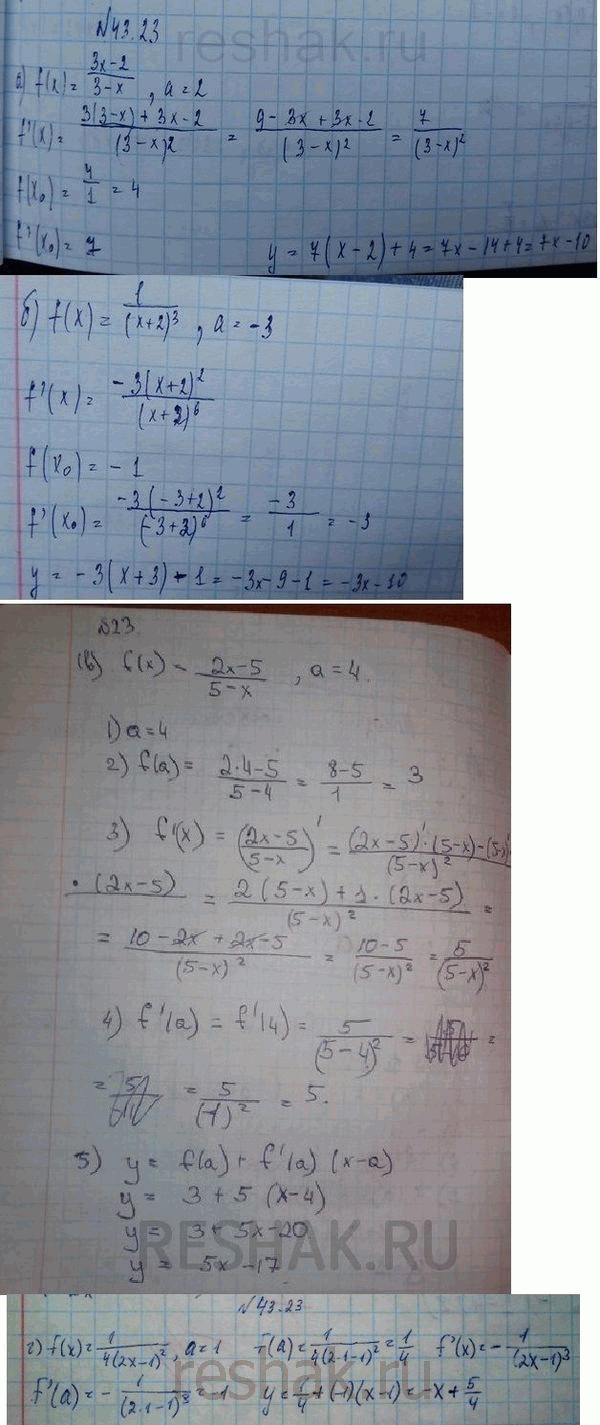 №43.23
reshak.ru
а) f(x) = (3x-2)/(3-x) , a = 2
f'(x) = (3(3-x)+3x-2)/(3-x)2 = (9-3x+3x-2)/(3-x)² = 7/(3-x)²
f(x₀) = 4/1 = 4
f'(x₀) = 7 y = 7(x-2)+4 = 7x-14+4 = 7x-10
б) f(x) = 1/(x+2)³ , a = -3
f'(x) = (-3(x+2)²)/(x+2)⁶
f(x₀) = -1
f'(x₀) = (-3(-3+2)²)/(-3+2)⁶ = -3/1 = -3
y = -3(x+3)-1 = -3x-9-1 = -3x-10
№23
(в) f(x) = (2x-5)/(5-x) , a = 4.
1) a = 4
2) f(a) = (2·4-5)/(5-4) = (8-5)/1 = 3
3) f'(x) = ((2x-5)/(5-x))' = ((2x-5)'·(5-x)-(5-x)'
·(2x-5))/(5-x)² = (2(5-x)+1·(2x-5))/(5-x)² =
= (10-2x+2x-5)/(5-x)² = (10-5)/(5-x)² = 5/(5-x)²
4) f'(a) = f'(4) = 5/(5-4)² = =
= = 5/(1)² = 5.
5) y = f(a) + f'(a) (x-a)
y = 3 + 5 (x-4)
y = 3 + 5x-20
RESHAK.RU
y = 5x-17
№43.23
г) f(x) = 1/4(2x-1)², a = 1 f(a) = 1/4(2·1-1)² = 1/4 f'(x) = -1/(2x-1)³
reshak.ru
f'(a) = -1/(2·1-1)³ = -1 y = 1/4+(-1)(x-1) = -x+5/4